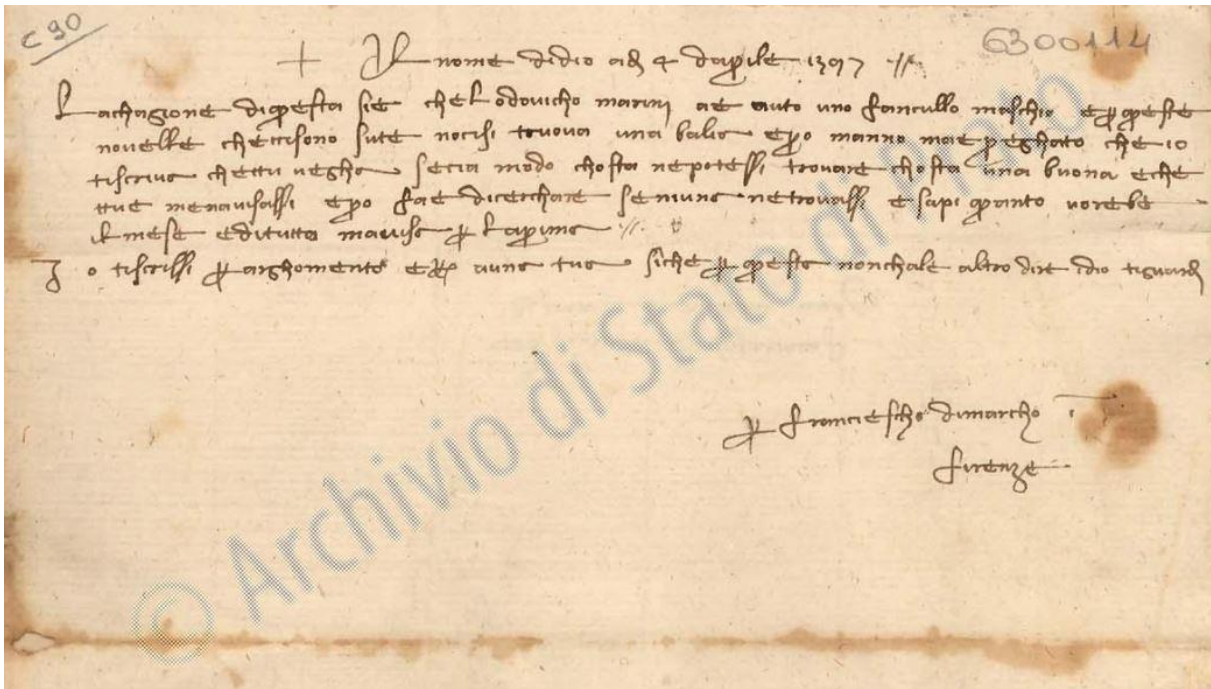 C 90
6300114
+ Al nome didio adj 4 daprile 1397 //
Lachagione diquesta sie che Lodovicho marini ae auto uno fancullo maschio e per queste
novelle checcisono sute nocisi truova una balia e pero manno mae preghato che io
tiscriva chettu vegha secia modo chosta nepotessi trovare chosta una buona e che
ttue menavisassi e pero fae dicerchare seniuna netrovassi e sapi quanto vorebe
il mese e ditutto mavisa per laprima //
Io tiscrissi per arghomento e per auna tua siche per questa nonchale altro dire idio tiguardj
per francieschо dimarcho i
firenze
© Archivio di Stato di Prato